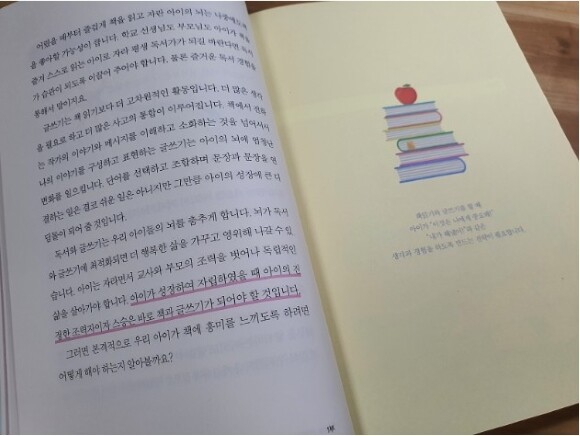 어렸을 때부터 즐겁게 책을 읽고 자란 아이의 뇌는 나중에도 책
을 좋아할 가능성이 큽니다. 학교 선생님도 부모님도 아이가 책을
즐겨 스스로 읽는 아이로 자라 평생 독서가가 되길 바란다면 독서
가 습관이 되도록 이끌어 주어야 합니다. 물론 즐거운 독서 경험을
통해서 말이지요.
글쓰기는 책 읽기보다 더 고차원적인 활동입니다. 더 많은 생각
을 필요로 하고 더 많은 사고의 통합이 이루어집니다. 책에서 전하
는 작가의 이야기와 메시지를 이해하고 소화하는 것을 넘어서서
나의 이야기를 구성하고 표현하는 글쓰기는 아이의 뇌에 엄청난
변화를 일으킵니다. 단어를 선택하고 조합하며 문장과 문장을 연
결하는 일은 결코 쉬운 일은 아니지만 그만큼 아이의 성장에 큰 디
딤돌이 되어 줄 것입니다.
독서와 글쓰기는 우리 아이들의 뇌를 춤추게 합니다. 뇌가 독서
와 글쓰기에 최적화되면 더 행복한 삶을 가꾸고 영위해 나갈 수 있
습니다. 아이는 자라면서 교사와 부모의 조력을 벗어나 독립적인
삶을 살아가야 합니다. 아이가 성장하여 자립하였을 때 아이의 진
정한 조력자이자 스승은 바로 책과 글쓰기가 되어야 할 것입니다.
그러면 본격적으로 우리 아이가 책에 흥미를 느끼도록 하려면
어떻게 해야 하는지 알아볼까요?
책읽기와 글쓰기를 할 때
아이가 "이것은 나에게 중요해"
"내가 해냈어"와 같은
생각과 경험을 하도록 만드는 전략이 필요합니다.